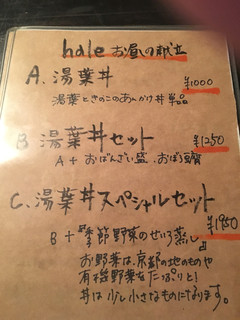 hale お昼の献立
A. 湯葉丼 ¥1000
湯葉ときのこのあんかけ丼 単品
B 湯葉丼セット ¥1250
A + おばんざい盛、おぼろ豆腐
C. 湯葉丼スペシャルセット ¥1950
B + 季節野菜のせいろ蒸し
お野菜は、京都の地のものや
有機野菜をたっぷりと
丼は少し小さなものになります。